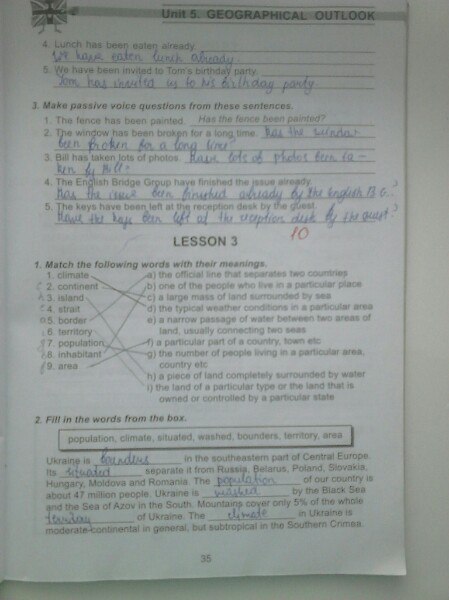 Unit 5. GEOGRAPHICAL OUTLOOK
4. Lunch has been eaten already.
We have eaten lunch already
5. We have been invited to Tom's birthday party.
Tom has invited us to his birthday party
3. Make passive voice questions from these sentences.
1. The fence has been painted. Has the fence been painted?
2. The window has been broken for a long time. Has the window
been broken for a long time?
3. Bill has taken lots of photos. Have lots of photos been ta-
ken by Bill?
4. The English Bridge Group have finished the issue already.
Has the issue been finished already by the English B G...?
5. The keys have been left at the reception desk by the guest.
Have the keys been left at the reception desk by the guest?
10
LESSON 3
1. Match the following words with their meanings.
1. climate a) the official line that separates two countries
2. continent b) one of the people who live in a particular place
3. island c) a large mass of land surrounded by sea
4. strait d) the typical weather conditions in a particular area
5. border e) a narrow passage of water between two areas of
land, usually connecting two seas
6. territory
7. population f) a particular part of a country, town etc
8. inhabitant g) the number of people living in a particular area,
country etc
9. area h) a piece of land completely surrounded by water
i) the land of a particular type or the land that is
owned or controlled by a particular state
2. Fill in the words from the box.
population, climate, situated, washed, bounders, territory, area
Ukraine is bounders in the southeastern part of Central Europe.
Its situated separate it from Russia, Belarus, Poland, Slovakia,
Hungary, Moldova and Romania. The population of our country is
about 47 million people. Ukraine is washed by the Black Sea
and the Sea of Azov in the South. Mountains cover only 5% of the whole
territory of Ukraine. The climate in Ukraine is
moderate-continental in general, but subtropical in the Southern Crimea.
35